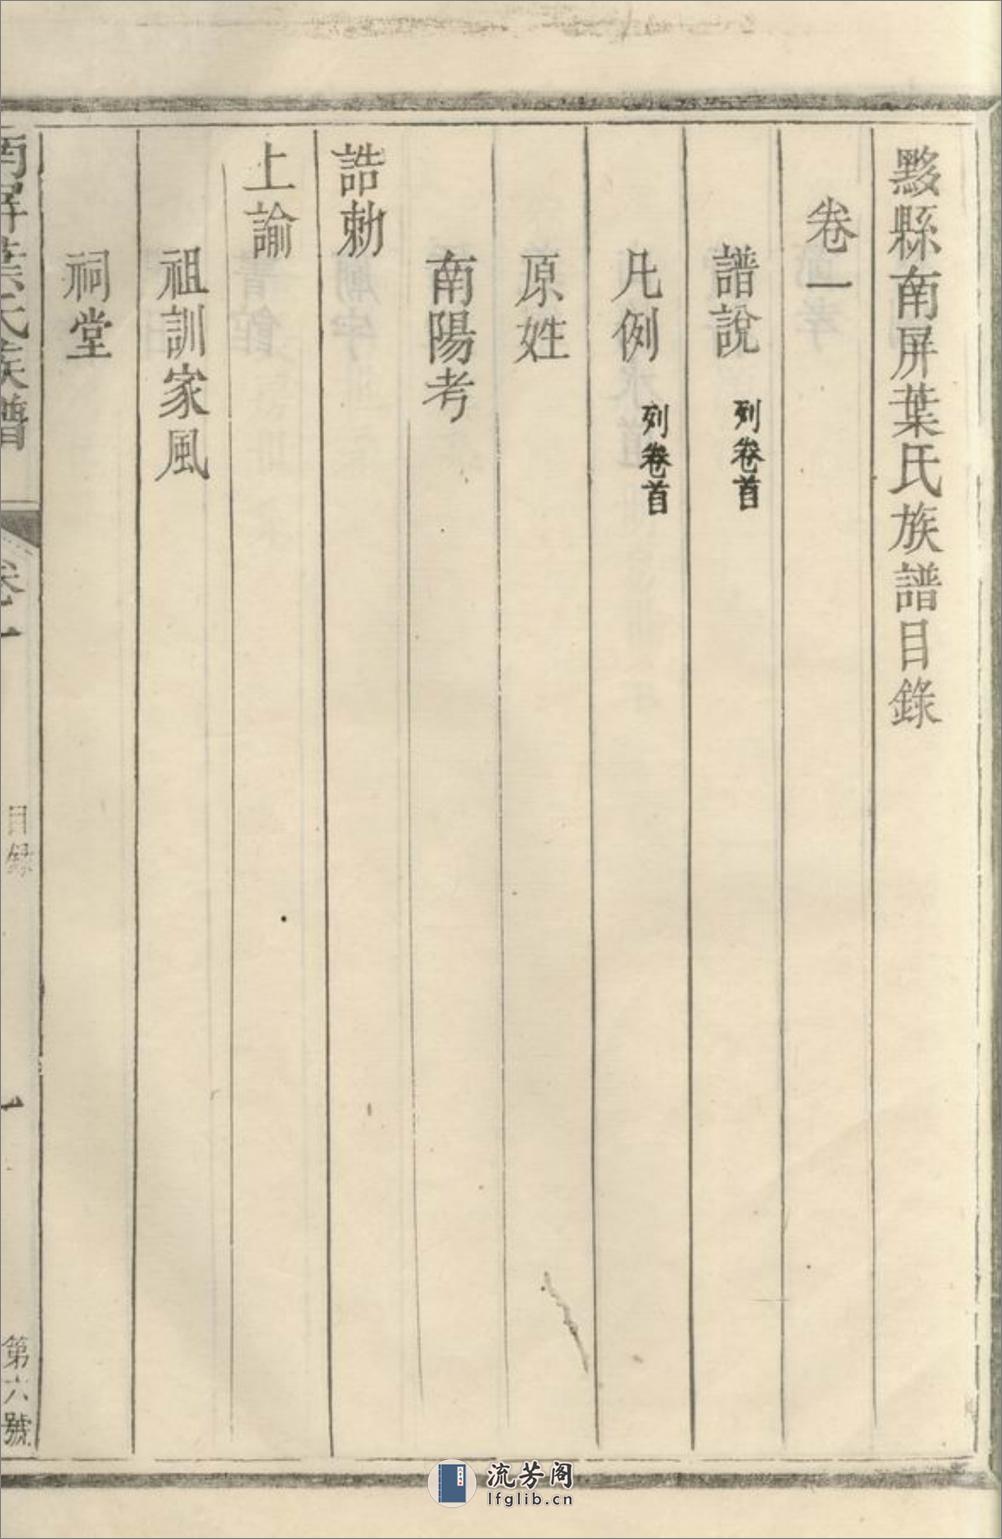 黟縣南屏葉氏族譜目錄
卷一
譜說 列卷首
凡例 列卷首
原姓
南陽考
誥勅
上諭
祖訓家風
祠堂
南屏葉氏族譜
卷一
目錄
一
第六號
流芳阁
lfglib.cn